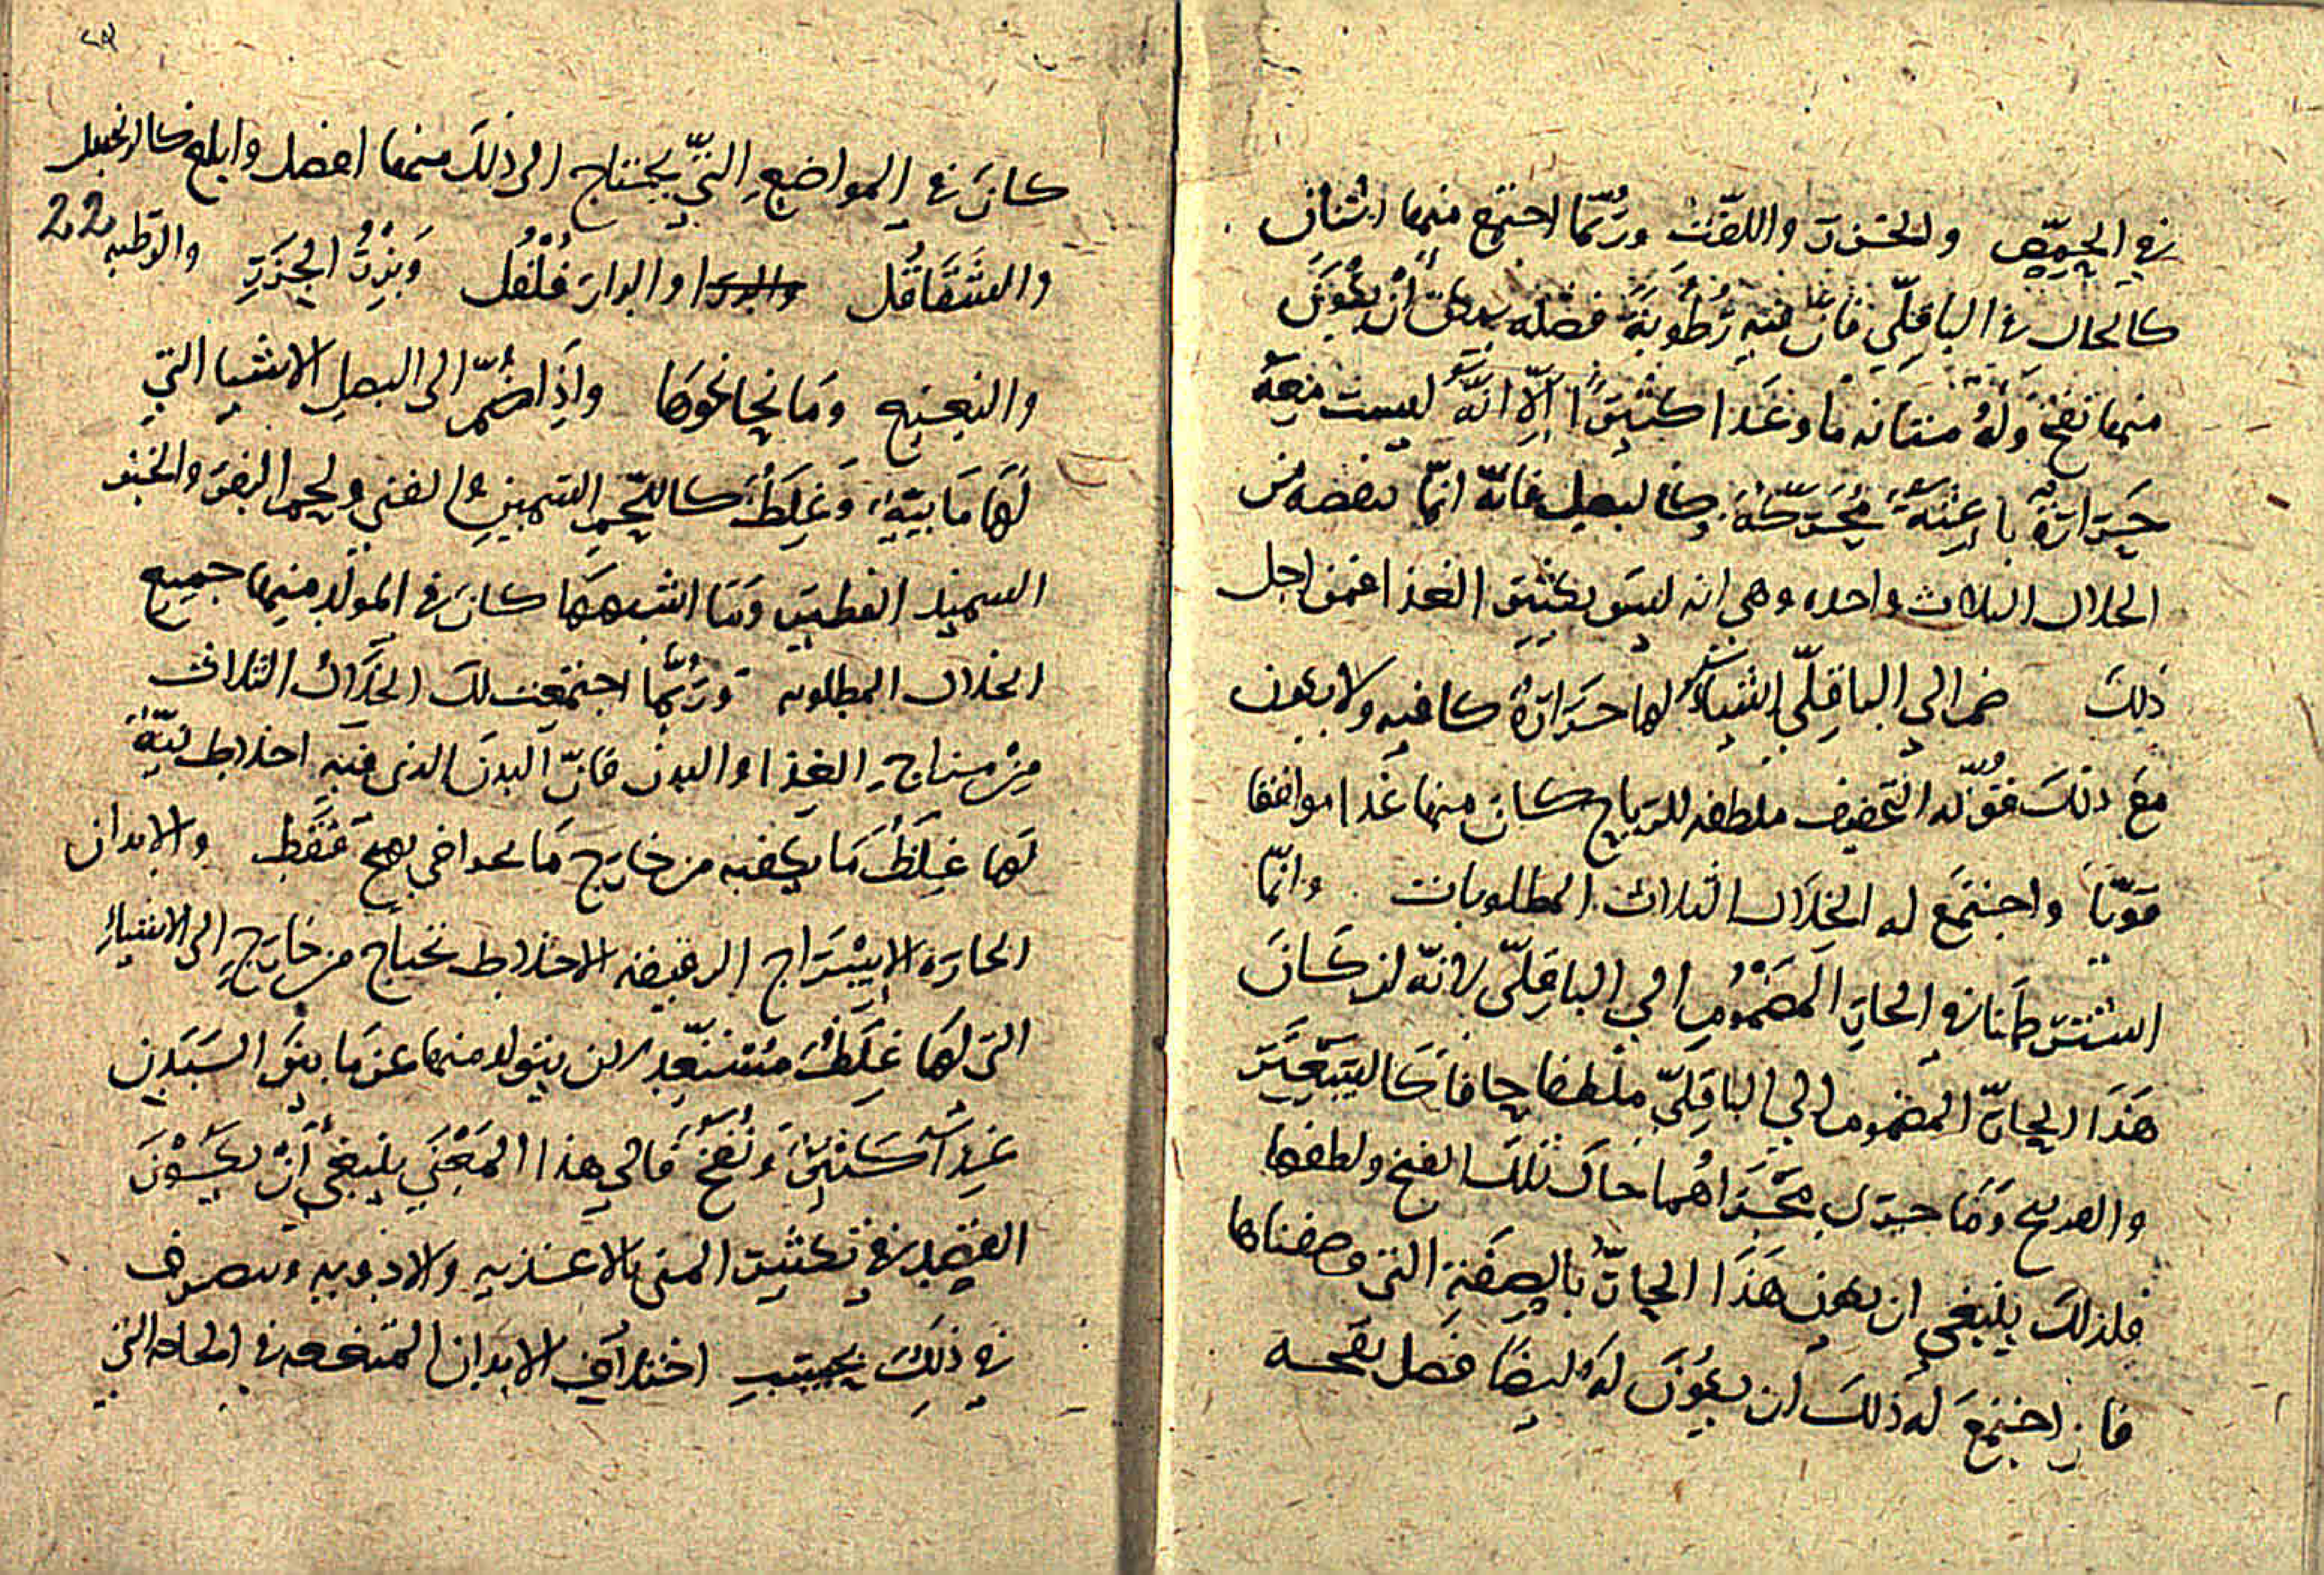 في الحمّص والجزر واللفت وربّما اجتمع فيها اثنان
كالحال في الباقلّي فان فيه رطوبة فضله يمكن أن يكون
منها نفخ وله متانه ما وغذا كثيرًا إلّا انّه ليست معه
حرارة باعثة محرّكة وكالبصل فانّه انّما نقصه من
الخلال الثلاث واحده وهي انه ليس بكثير الغذا فمن اجل
ذلك ضم الي الباقلّي اشياء لها حرارة كافيه ولا يكون
مع ذلك قوّيه التجفيف ملطفه للرياح كان منها غذا موافقا
قويّا واجتمع له الخلال الثلاث المطلوبات وانّما
اشترطنا في الحارّ المضموم الي الباقلّي لانّه ان كان
هذا الحارّ المضموم الي الباقلّي ملطفا جافا كالسعتر
وما جرى مجراهما حلل تلك النفخ ولطفها
فلذلك ينبغي ان يكون هذا الحارّ بالصفة التي وصفناها
فان اجتمع له ذلك ان يكون له ايضا فضل نفخه
كان في المواضع التي يحتاج الى ذلك منها افضل وابلغ كالزنجبيل
والشقاقل والدارفلفل وبزر الجزر والرطبه
وما نحا نحوها واذا ضمّ الى البصل الاشيا التي
لها مايية وغلظ كاللّحم السّمين الفتي ولحم البقر والخبز
السميذ الفطير وما اشبهها كان في المولد منها جميع
الخلال المطلوبه وربّما اجتمعت لك الخلال الثلاث
من مزاج الغذا والبدن فانّ البدن الذي فيه اخلاط نيّة
لها غلظ ما يكفيه من خارج ما فقط والابدان
الحارة المزاج الرقيقه الاخلاط تحتاج من خارج الى الاشياء
التي لها غلظ مستعد لان يتولد منها عن ما بين السببين
غذاء كثير ونفخ فالي هذا المعنى ينبغي أن يكون
القصد في تكثير المني بالاغذيه والادويه وتصرف
في ذلك بحسب اختلاف الابدان في الحاله التي